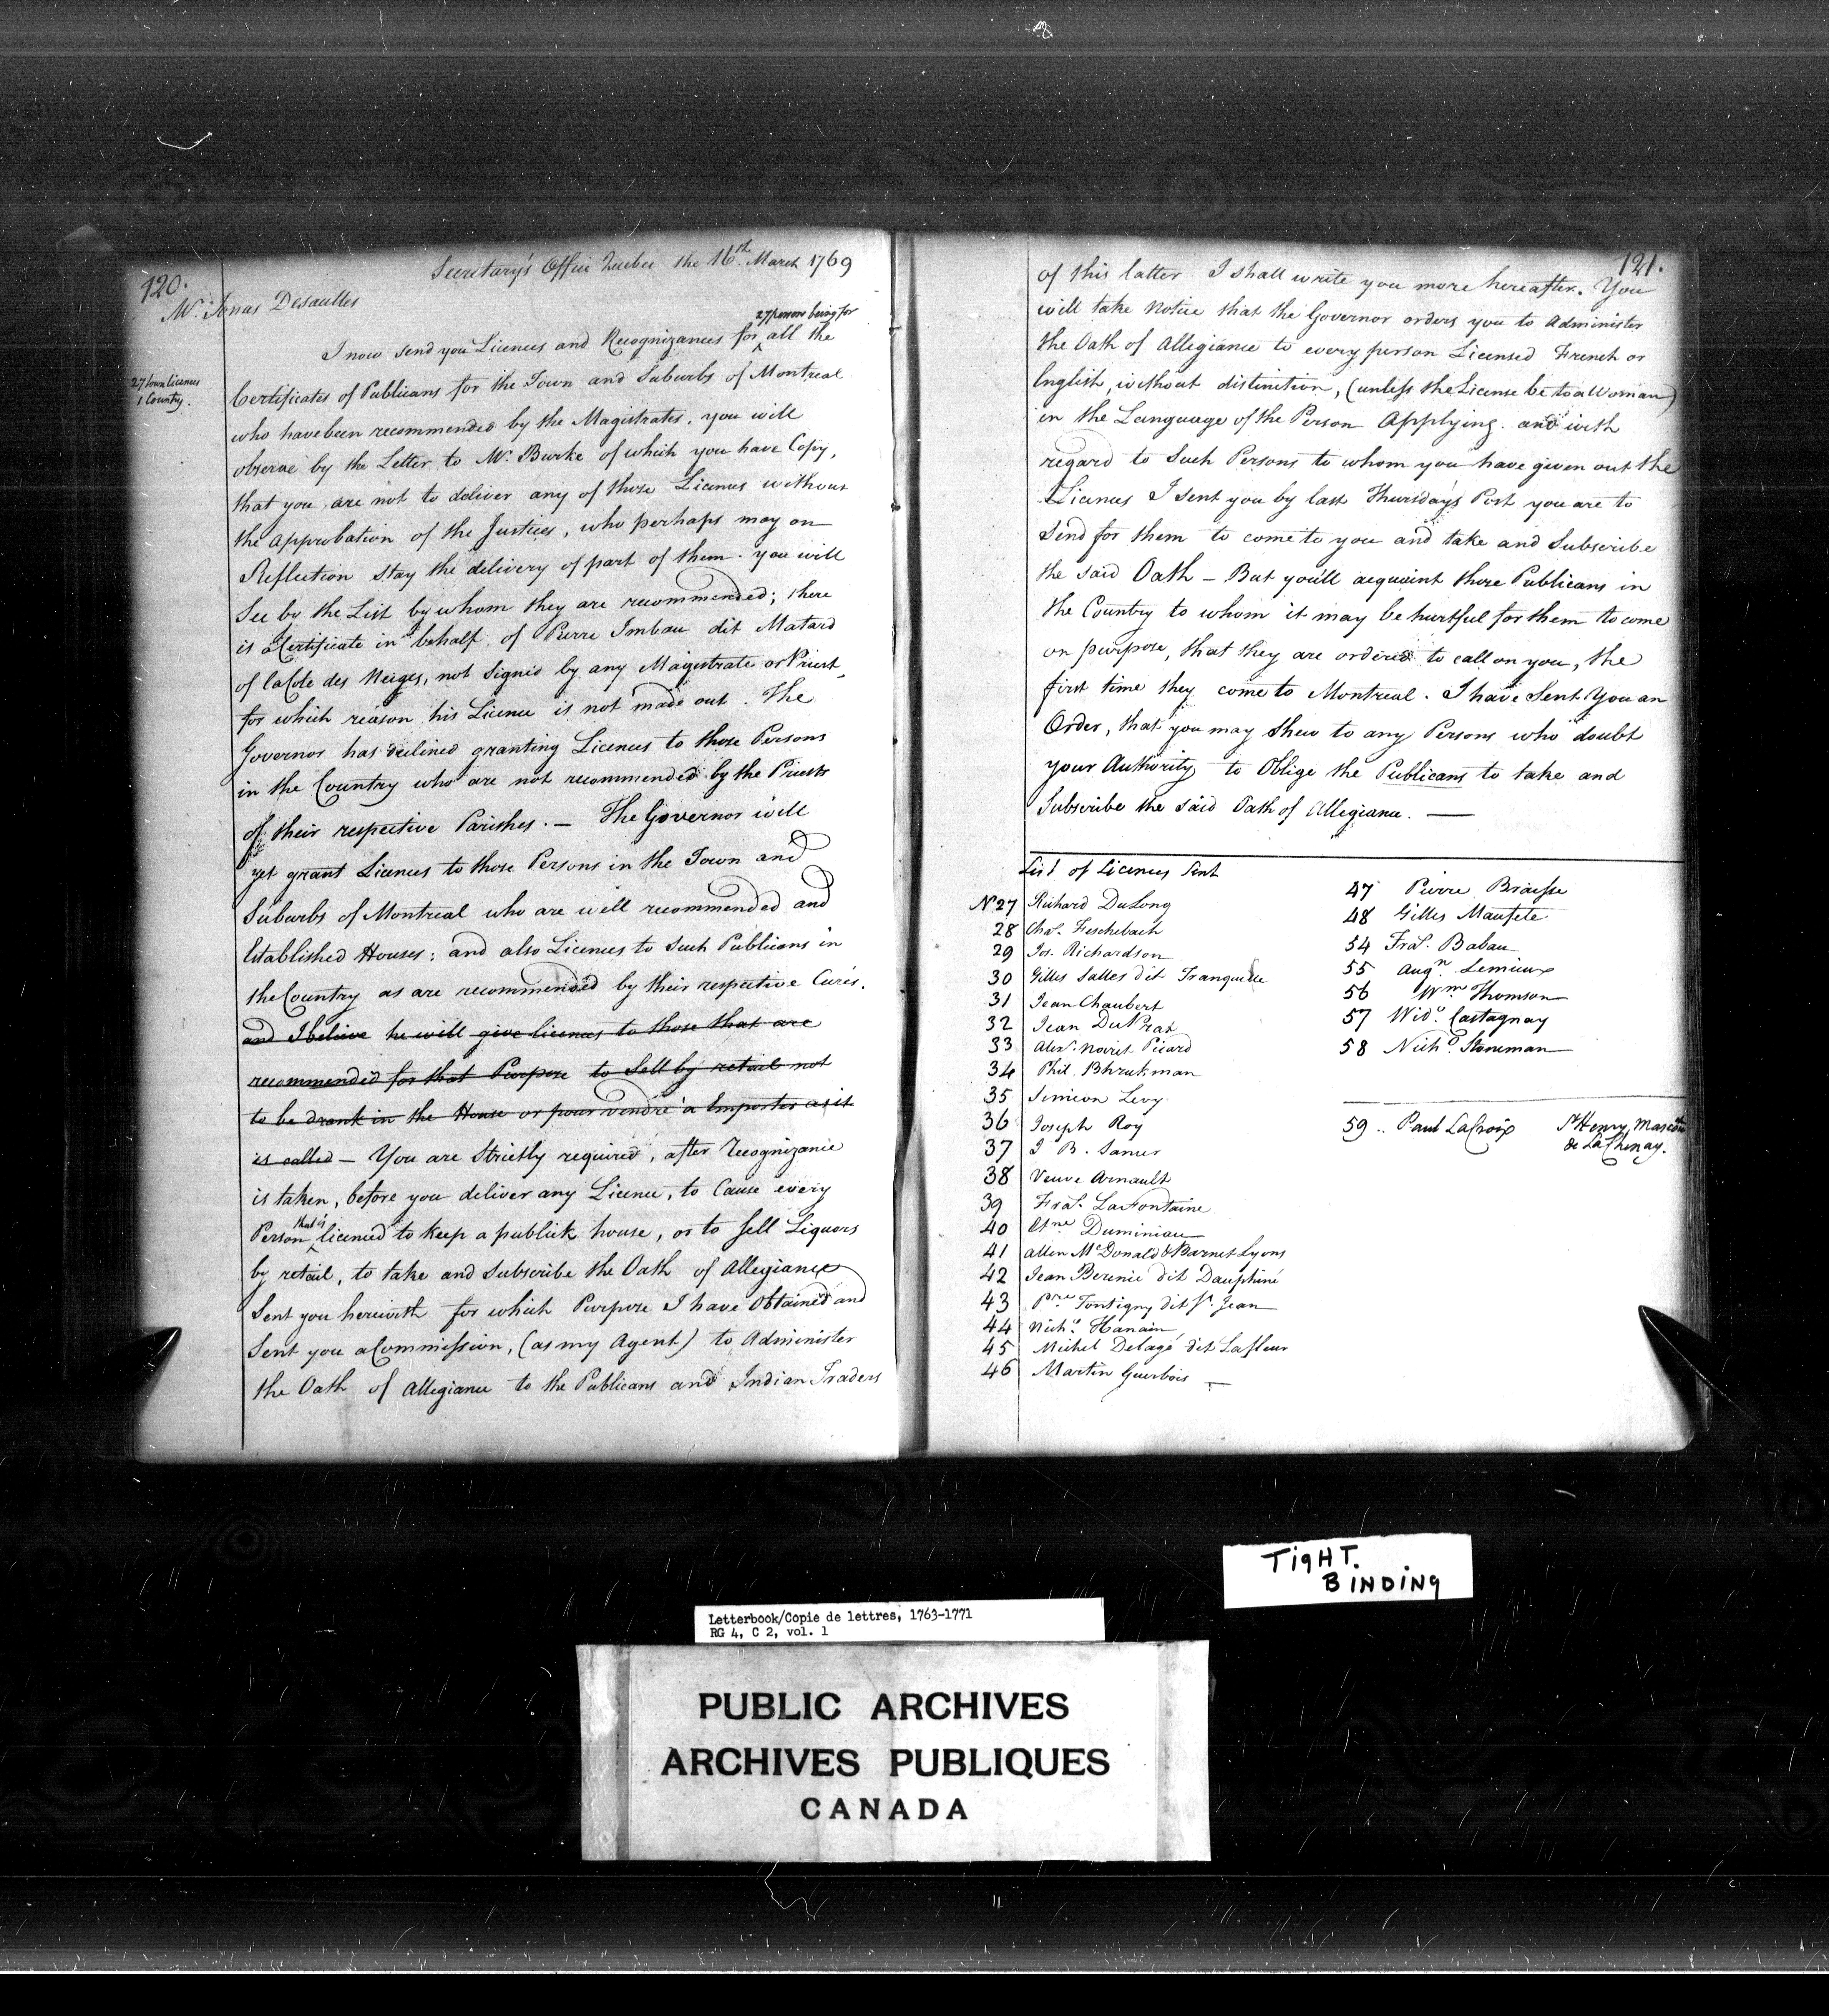 120.
Secretary's Office Quebec the 16th. March 1769
Mr. Jonas Desaulles
27 persons being for
I now send you Licences and Recognizances for ^ all the
27 town licences
1 Country.
Certificates of Publicans for the Town and Suburbs of Montreal
who have been recommended by the Magistrates, you will
observe by the Letter to Mr. Burke of which you have Copy,
that you are not to deliver any of those Licences without
the approbation of the Justices, who perhaps may on
Reflection stay the delivery of part of them. you will
See by the List by whom they are recommended; there
is a Certificate in behalf of Pierre Imbau dit Matard
of la Cote des Neiges, not Signed by any Magistrate or Priest,
for which reason his Licence is not made out. The
Governor has declined granting Licences to those Persons
in the Country who are not recommended by the Priests
of their respective Parishes. — The Governor will
yet grant Licences to those Persons in the Town and
Suburbs of Montreal who are well recommended and
Established Houses; and also Licences to Such Publicans in
the Country as are recommended by their respective Curés.
and I believe he will give licences to those that are
recommended for that Purpose to Sell by retail not
to be drank in the House or pour vendre a Emporter as it
is called — You are Strictly required, after Recognizance
is taken, before you deliver any Licence, to Cause every
Person ^ that is licenced to keep a publick house, or to Sell Liquors
by retail, to take and Subscribe the Oath of Allegiance
Sent you herewith for which Purpose I have Obtained and
Sent you a Commission, (as my Agent) to Administer
the Oath of Allegiance to the Publicans and Indian Traders
121.
of this latter I shall write you more hereafter. You
will take Notice that the Governor orders you to Administer
the Oath of Allegiance to every person Licensed French or
English, without distinction, (unless the License be to a Woman)
in the Language of the Person Applying. and with
regard to Such Persons to whom you have given out the
Licences I sent you by last Thursday's Post you are to
Send for them to come to you and take and Subscribe
the said Oath — But you'll acquaint those Publicans in
the Country to whom it may be hurtful for them to come
on purpose, that they are ordered to call on you, the
first time they come to Montreal. I have Sent You an
Order, that you may Shew to any Persons who doubt
your Authority to Oblige the Publicans to take and
Subscribe the said Oath of Allegiance. —
List of Licences Sent
No 27 Richard DuLong
28 Chas. Feschebach
29 Jos. Richardson
30 Gilles Salles dit Tranquille
31 Jean Chaubert
32 Jean DuPrat
33 Alexr. Noiret Picard
34 Phil Bhrukman
35 Simeon Levy
36 Joseph Roy
37 J B. Saner
38 Veuve Arnault
39 Fras. LaFontaine
40 Etne Duminiau
41 Allen McDonald & Barnet Lyons
42 Jean Bernié dit Dauphiné
43 Pre Tontigny dit St. Jean
44 Nichs. Hanain
45 Michel Delagé dit Lafleur
46 Martin Guerbois —
47 Pierre Braisse
48 Gilles Maufete
54 Fras. Babau
55 Augn. Lemieux
56 Wm Thomson
57 Widw. Castagnay
58 Nichs. Stoneman
59 .. Paul LaCroix St Henry Mascou
de LaChenay.
TIGHT.
BINDING
Letterbook/Copie de lettres, 1763-1771
RG 4, C 2, vol. 1
PUBLIC ARCHIVES
ARCHIVES PUBLIQUES
CANADA